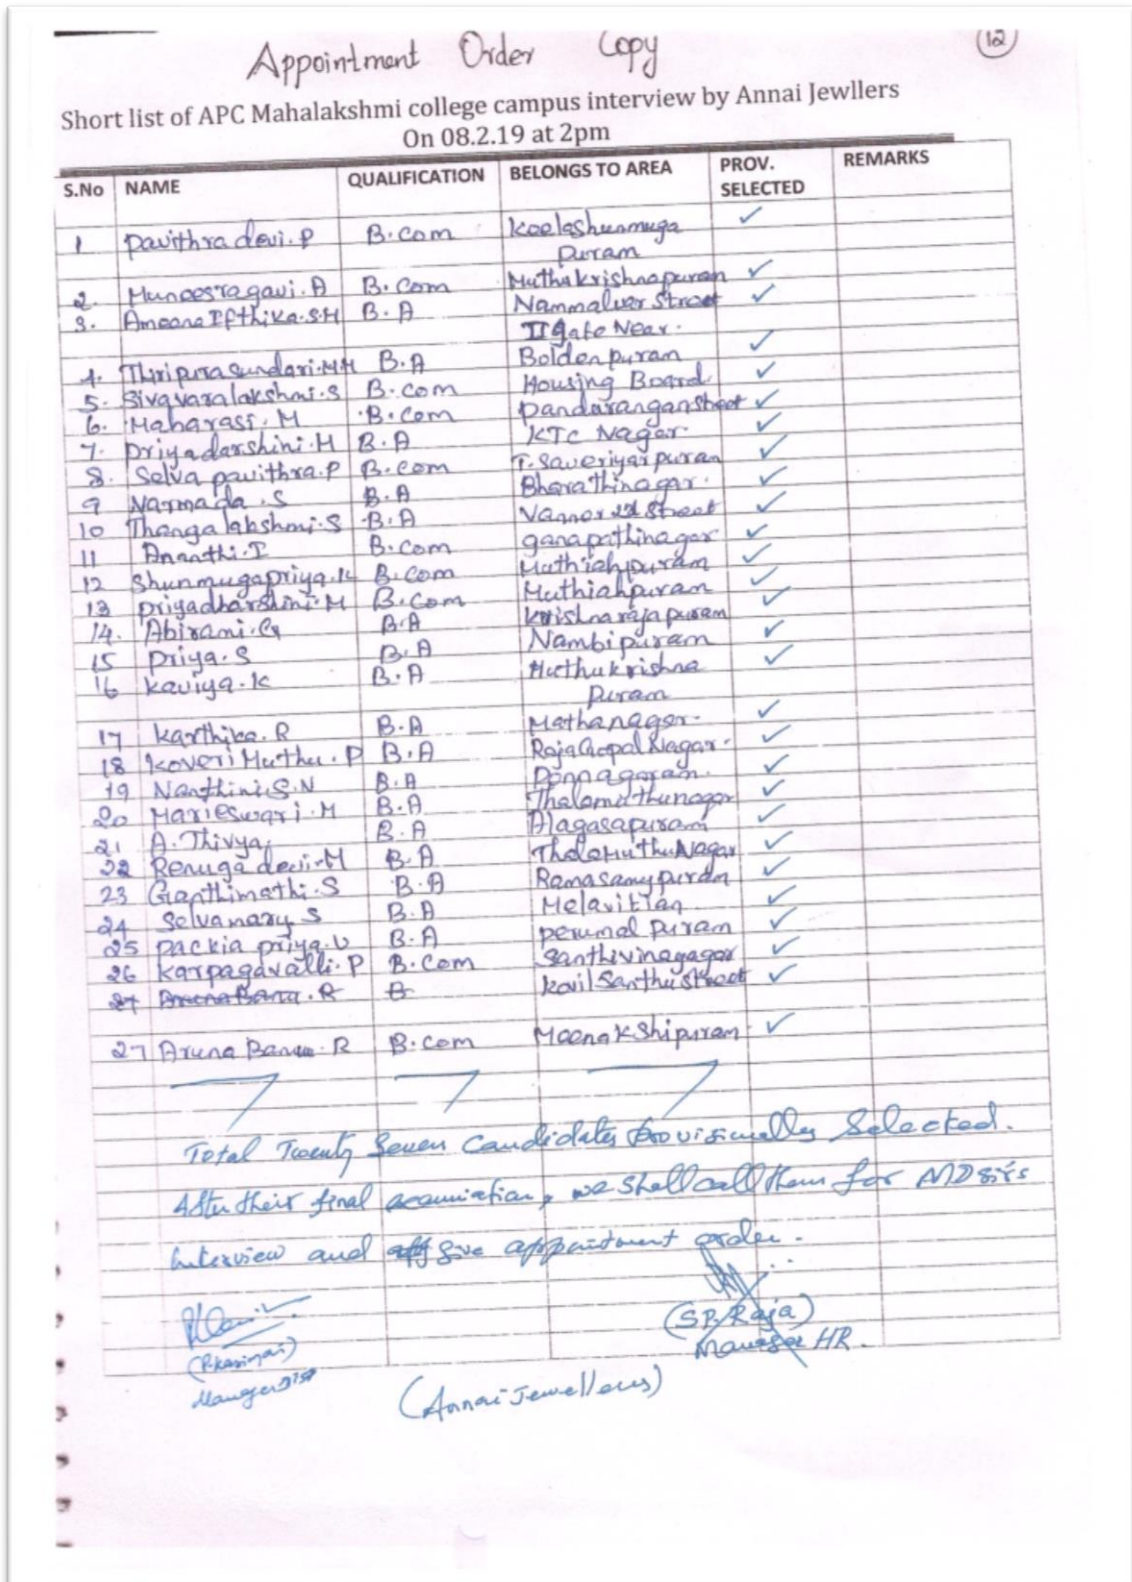 Appointment Order Copy
12
Short list of APC Mahalakshmi college campus interview by Annai Jewllers
On 08.2.19 at 2pm
S.No NAME QUALIFICATION BELONGS TO AREA PROV. SELECTED REMARKS
1 Pavithra devi.P B.Com Keelashunmuga Puram ✓
2. Muneesragavi.A B.Com Muthukrishnapuram ✓
3. Ameena Ifthika.S.M B.A Nammalver Street ✓
II gate Near.
4. Thiripura Sundari.MM B.A Boldenpuram ✓
5. Sivavaralakshmi.S B.Com Housing Board ✓
6. Maharasi.M B.Com Pandarangan Street ✓
7. Priyadarshini.M B.A KTC Nagar. ✓
8. Selva pavithra.P B.Com T.Saveriyarpuram ✓
9 Narmada.S B.A Bharathinagar. ✓
10 Thangalakshmi.S B.A Street ✓
11 Ananthi.I B.Com ganapathinagar ✓
12 Shunmugapriya.K B.Com Muthiahpuram ✓
13 Priyadharshini.M B.Com Muthiahpuram ✓
14. Abirami.G B.A Krishnarajapuram ✓
15 Priya.S B.A Nambipuram ✓
16 Kaviya.K B.A Muthukrishna Puram ✓
17 Karthika.R B.A Mathanagar. ✓
18 Koveri Muthu.P B.A RajaGopal Nagar. ✓
19 Nanthini.S.N B.A Ponnagaram. ✓
20 Marieswari.M B.A Thalamuthunagar ✓
21 A.Thivya B.A Alagasapuram ✓
22 Renuga devi.M B.A Thalamuthu Nagar ✓
23 Ganthimathi.S B.A Ramasamypuram ✓
24 Selvamary S B.A Melavittan ✓
25 Packia priya.U B.A Perumal Puram ✓
26 Karpagavalli.P B.Com Santhivinagagar ✓
27 Aruna Banu.R B Kovil Santhu Street ✓
27 Aruna Banu.R B.Com Meenakshipuram ✓
Total Twenty Seven Candidates provisionally Selected.
After their final, we shall call them for MD sir's
Interview and give appointment order.
(S.P. Raja)
Manager HR.
Manager
(Annai Jewellers)